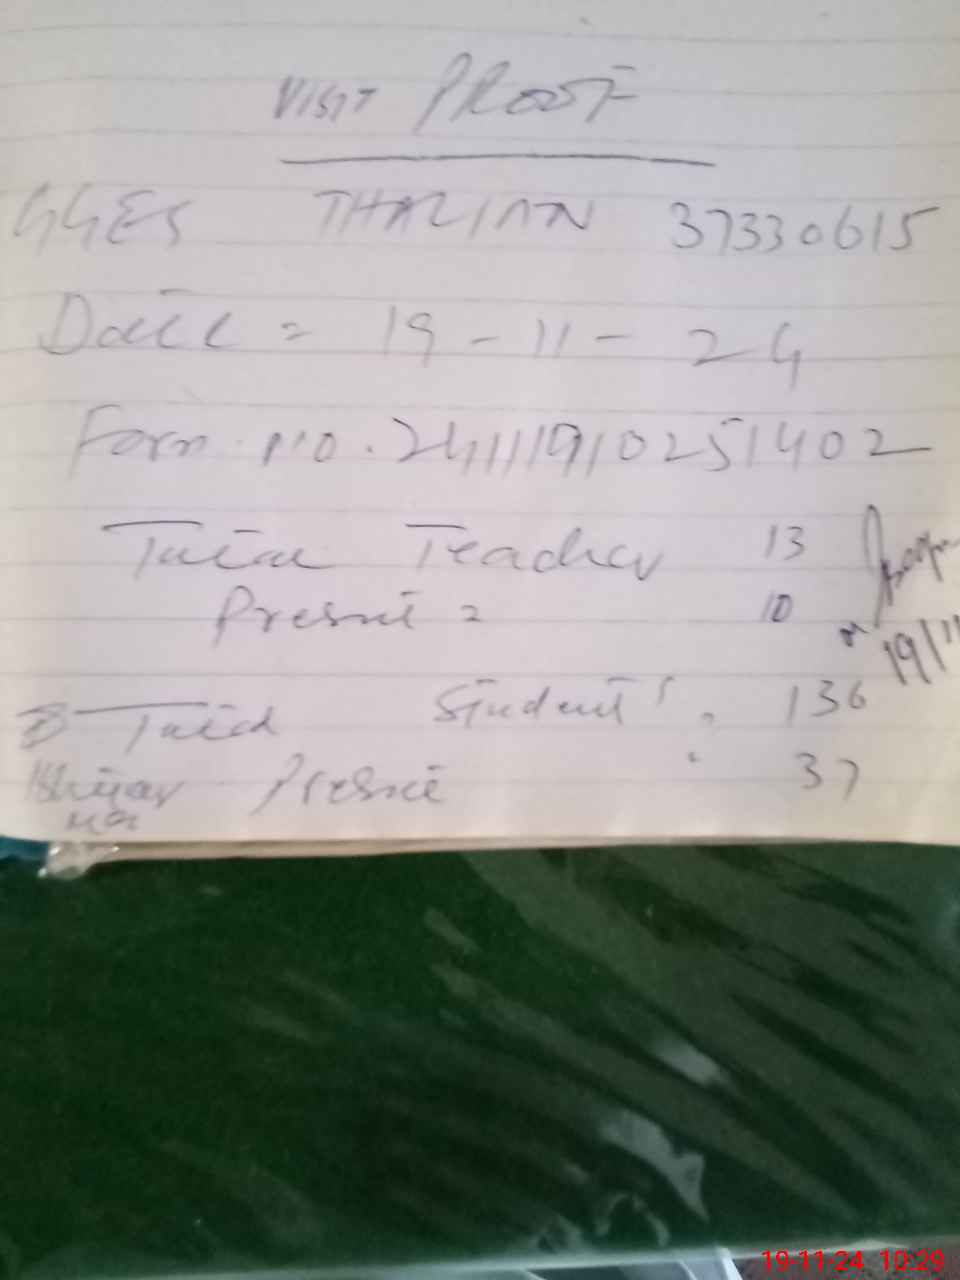 VISIT PROOF
GGES THALIAN 37330615
Date = 19-11-24
Form no. 24111910251402
Total Teacher 13
Present = 10
19/11
Total Students. 136
Present 37
19-11-24 10:29